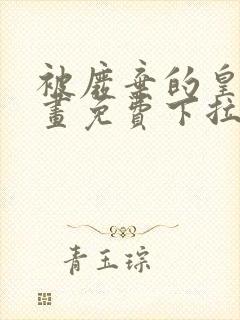 被废弃的皇
畫免費下拉
青玉琮